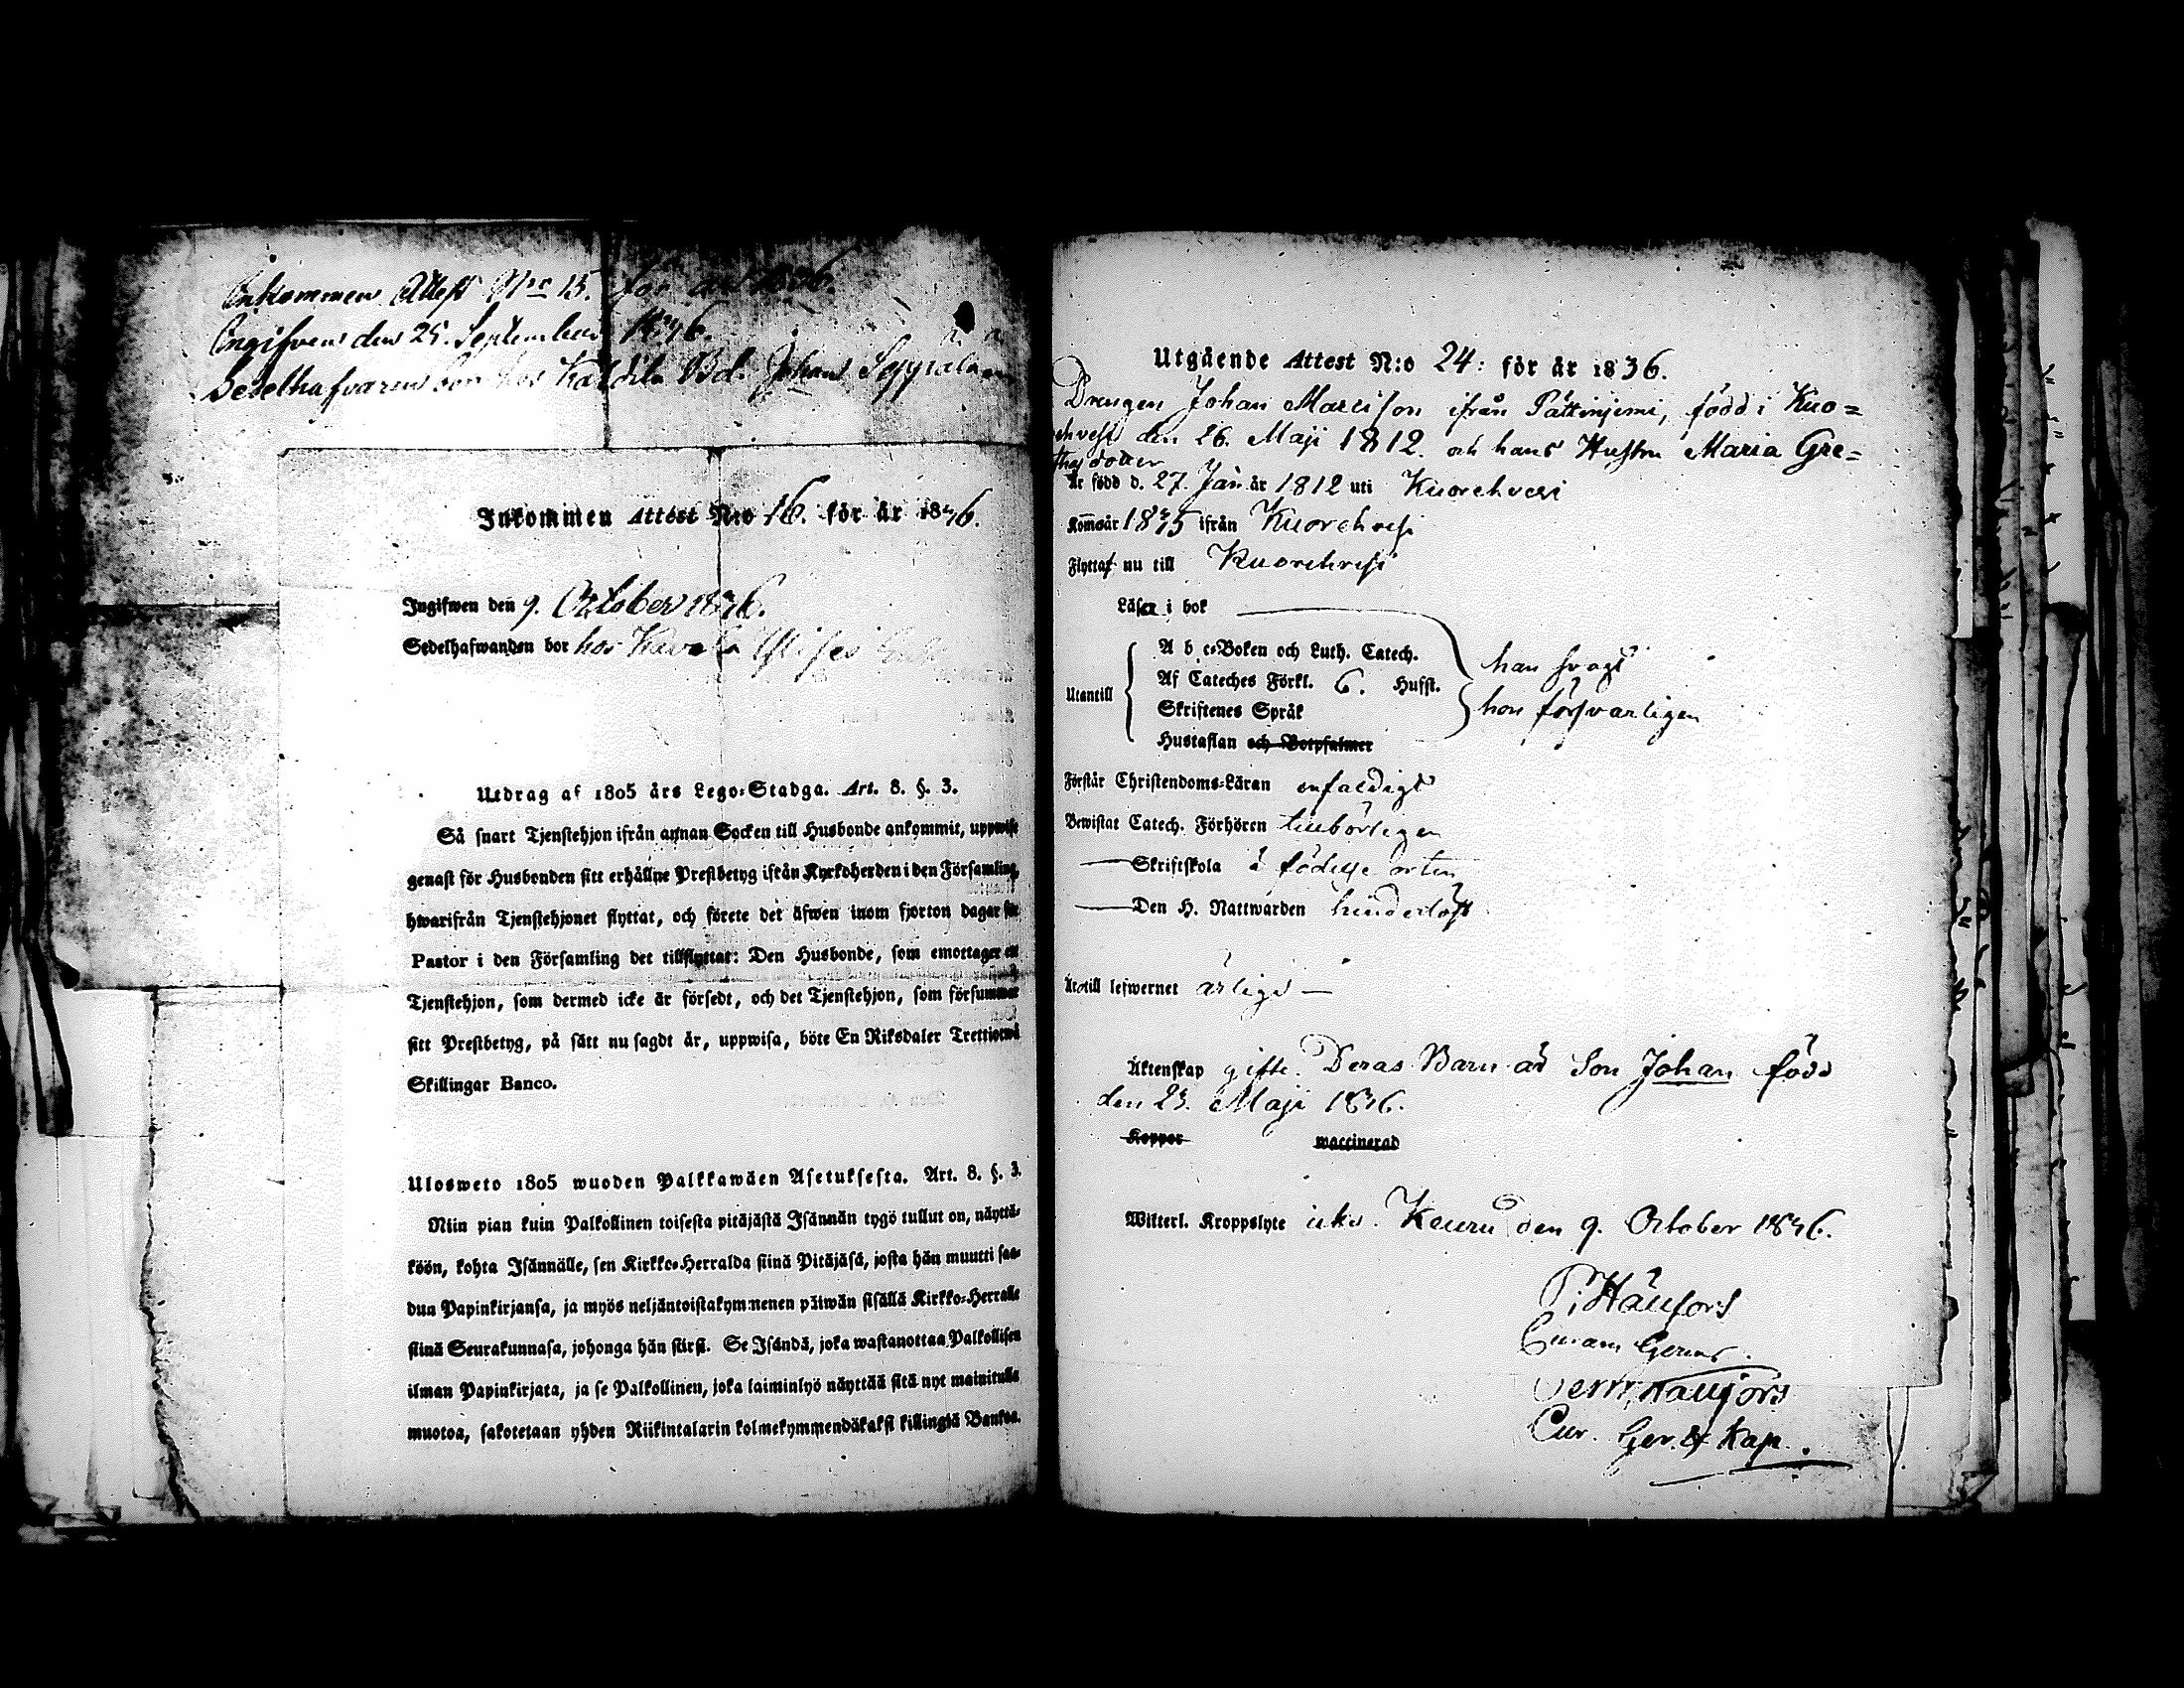 Inkommen Attest Nro 15. för år 1836.
Ingifven den 25. September 1836.
Sedelhafvaren bor hos Kaldila Bd. Johan
Inkommen Attest N:o 16. för år 1836.
Ingifwen den 9. October 1836.
Sedelhafwanden bor hos
Utdrag af 1805 års Lego-Stadga. Art. 8. §. 3.
Så snart Tjenstehjon ifrån annan Socken till Husbonde ankommit, uppwise
genast för Husbonden sitt erhållne Prestbetyg ifrån Kyrkoherden i den Församling,
hwarifrån Tjenstehjonet flyttat, och förete det äfwen inom fjorton dagar för
Pastor i den Församling det tillflyttat: Den Husbonde, som emottager ett
Tjenstehjon, som dermed icke är försedt, och det Tjenstehjon, som försummar
sitt Prestbetyg, på sätt nu sagdt är, uppwisa, böte En Riksdaler Trettiotwå
Skillingar Banco.
Ulosweto 1805 wuoden Palkkawäen Asetuksesta. Art. 8. §. 3.
Niin pian kuin Palkollinen toisesta pitäjästä Isännän tygö tullut on, näyttä-
köön, kohta Isännälle, sen Kirkko-Herralda siinä Pitäjäsä, josta hän muutti saa-
dun Papinkirjansa, ja myös neljäntoistakymmenen päiwän sisällä Kirkko-Herralle
siinä Seurakunnasa, johonga hän siirsi. Se Isändä, joka wastanottaa Palkollisen
ilman Papinkirjata, ja se Palkollinen, joka laiminlyö näyttää sitä nyt mainitulla
muotoa, sakotetaan yhden Riikintalarin kolmekymmendäkaksi killingiä Bankoa.
Utgående Attest N:o 24: för år 1836.
Drengen Johan Marcison ifrån Pättinjemi, född i Kuo=
rehvesi den 26. Maji 1812. och hans Hustru Maria Gre=
thas dotter
Är född d. 27. Jan år 1812 uti Kuorehvesi
Kom år 1835 ifrån Kuorehvesi
Flytta nu till Kuorehvesi
Läser i bok
Utantill
A b c-Boken och Luth. Catech.
Af Cateches Förkl. 6. Hufst.
Skriftenes Språk
Hustaflan och Botpsalmer
han svagt
hon försvarligen
Förstår Christendoms-Läran enfaldigt
Bewistat Catech. Förhören tillbörligen
Skriftskola å födelse orten
Den H. Nattwarden hinderlöst
Är till lefwernet ärligt
Äktenskap gifte. Deras Barn är Son Johan född
den 23. Maji 1836.
Koppor waccinerad
Witterl. Kroppslyte icke. Keuru den 9. October 1836.
P. Hänfors
Curam Gerens.
Cur. Ger. & Kap.